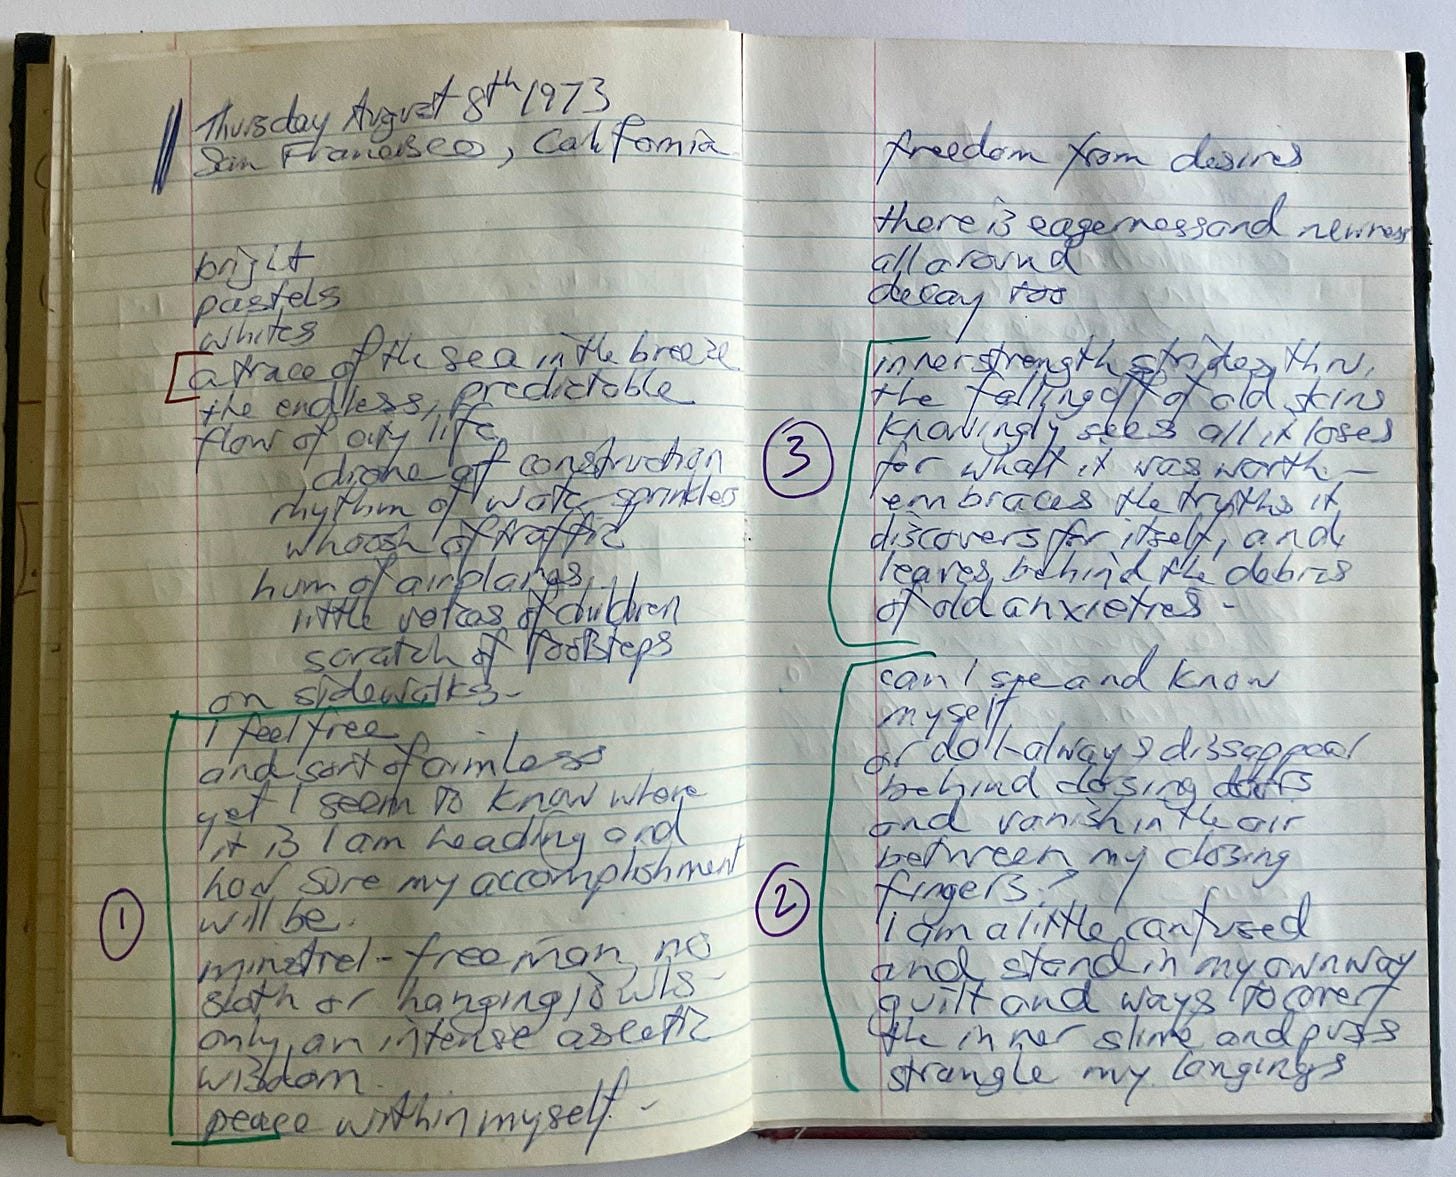 Thursday August 8th 1973
San Francisco, California
bright
pastels
whites
a trace of the sea in the breeze
the endless, predictable
flow of city life
drone of construction
rhythm of water sprinklers
whoosh of traffic
hum of airplanes
little voices of children
scratch of footsteps
on sidewalks-
I feel free
and sort of aimless
yet I seem to know where
it is I am heading and
how sure my accomplishment
will be.
minstrel - free man no
sloth or hanging jowls-
only an intense ascetic
wisdom.
peace within myself. -
1
freedom from desires
there is eagerness and newness
all around
decay too
inner strength strides thru,
the falling off of old skins
knowingly sees all it loses
for what it was worth -
embraces the truths it
discovers for itself, and
leaves behind the debris
of old anxieties -
3
can I see and know
myself
or do I always disappear
behind closing doors
and vanish in the air
between my closing
fingers?
I am a little confused
and stand in my own way
guilt and ways to cover
the inner slime and puss
strangle my longings
2